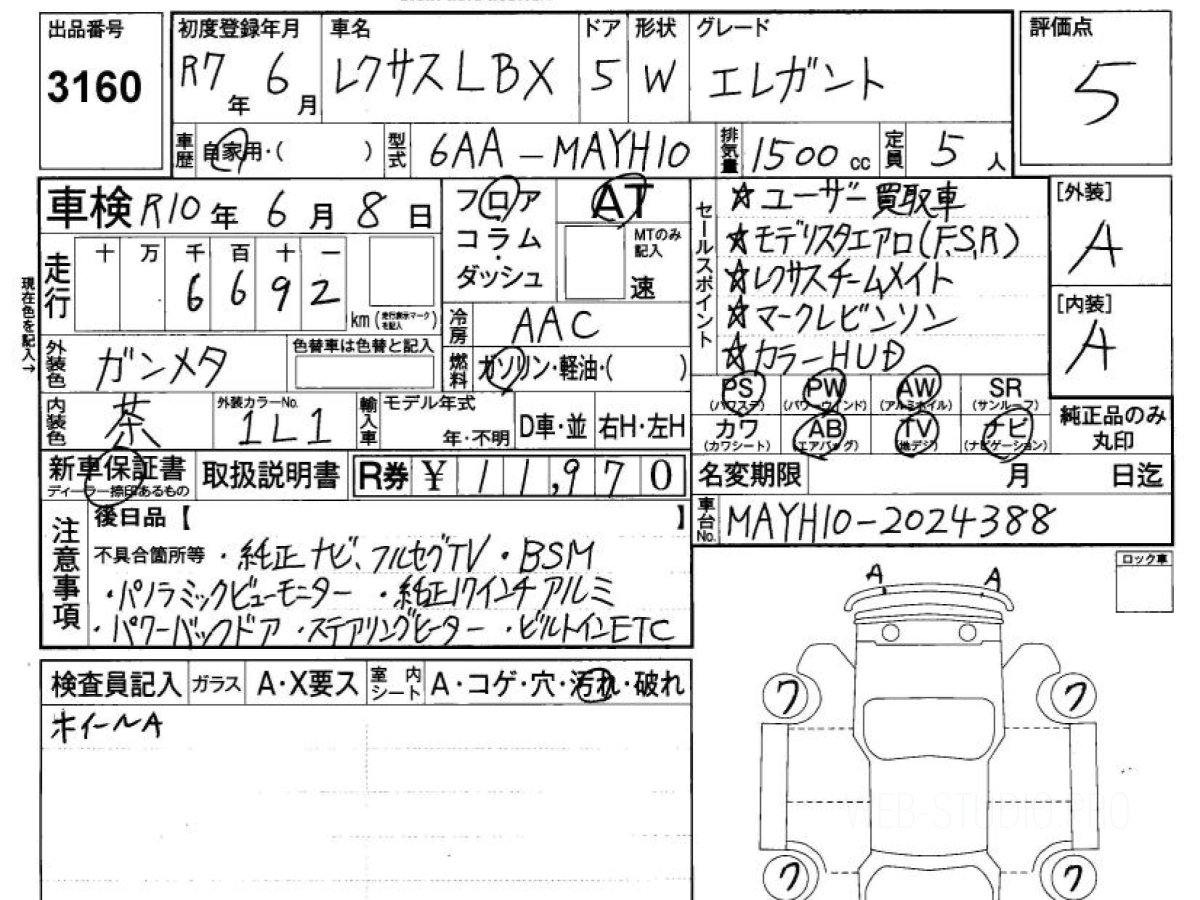 出品番号 初度登録年月 車名 ドア 形状 グレード 評価点
3160 R7年 6月 レクサスLBX 5 W エレガント 5
車歴 自家用・( ) 型式 6AA-MAYH10 排気量 1500cc 定員 5人
車検 R10年 6月 8日 フロア AT ☆ユーザー買取車 [外装]
コラム・ MTのみ記入 ☆モデリスタエアロ(F,S,R) A
ダッシュ 速 ☆レクサスチームメイト
セールスポイント ☆マークレビンソン [内装]
☆カラーHUD A
現在色を記入→
走行 十 万 千 百 十 一
6 6 9 2 km (走行表示マークを記入)
冷房 AAC
外装色 ガンメタ 色替車は色替と記入 燃料 ガソリン・軽油・( )
PS PW AW SR
(パワステ) (パワーウインド) (アルミホイル) (サンルーフ)
カワ AB TV ナビ
(カワシート) (エアバッグ) (地デジ) (ナビゲーション)
純正品のみ
丸印
内装色 茶 外装カラーNo. 1L1 輸入車 モデル年式 年・不明 D車・並 右H・左H
新車保証書 取扱説明書 R券 ¥ 11,970 名変期限 月 日迄
ディーラー捺印あるもの
車台No. MAYH10-2024388
注意事項 後日品【 】
不具合箇所等 ・純正ナビ、フルセグTV ・BSM
・パノラミックビューモニター ・純正17インチアルミ
・パワーバックドア ・ステアリングヒーター ・ビルトインETC
ロック車
A A
検査員記入 ガラス A・X要ス 室内シート A・コゲ・穴・汚れ・破れ
ホイールA
ワ ワ
WEB-STUDIO.PRO
ワ ワ